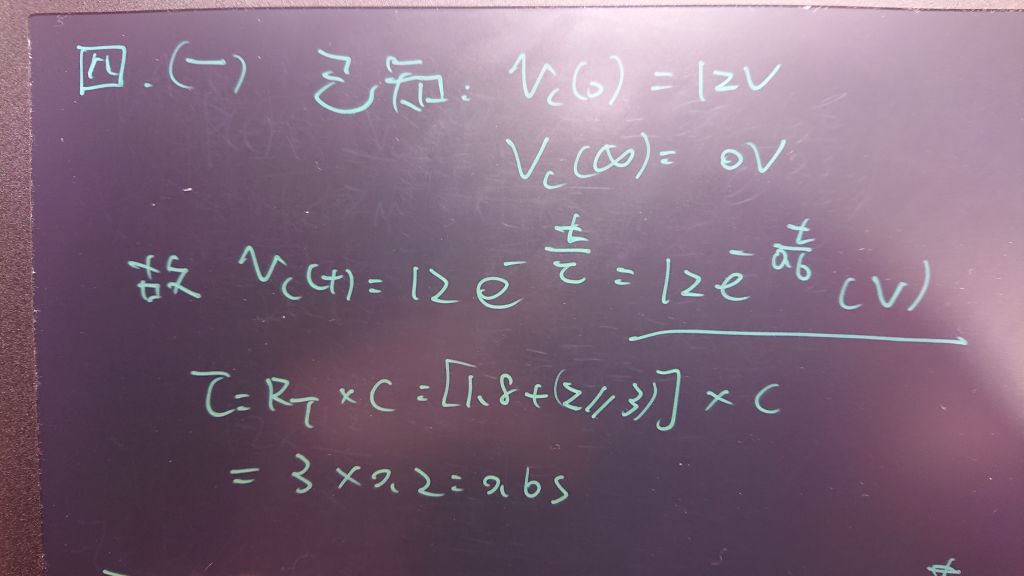 四.(一) 已知: Vc(0) = 12V
Vc(∞) = 0V
故 Vc(t) = 12e^(-t/τ) = 12e^(-t/0.6) (V)
τ = R_T × C = [1.8+(2//3)] × C
= 3 × 0.2 = 0.6s